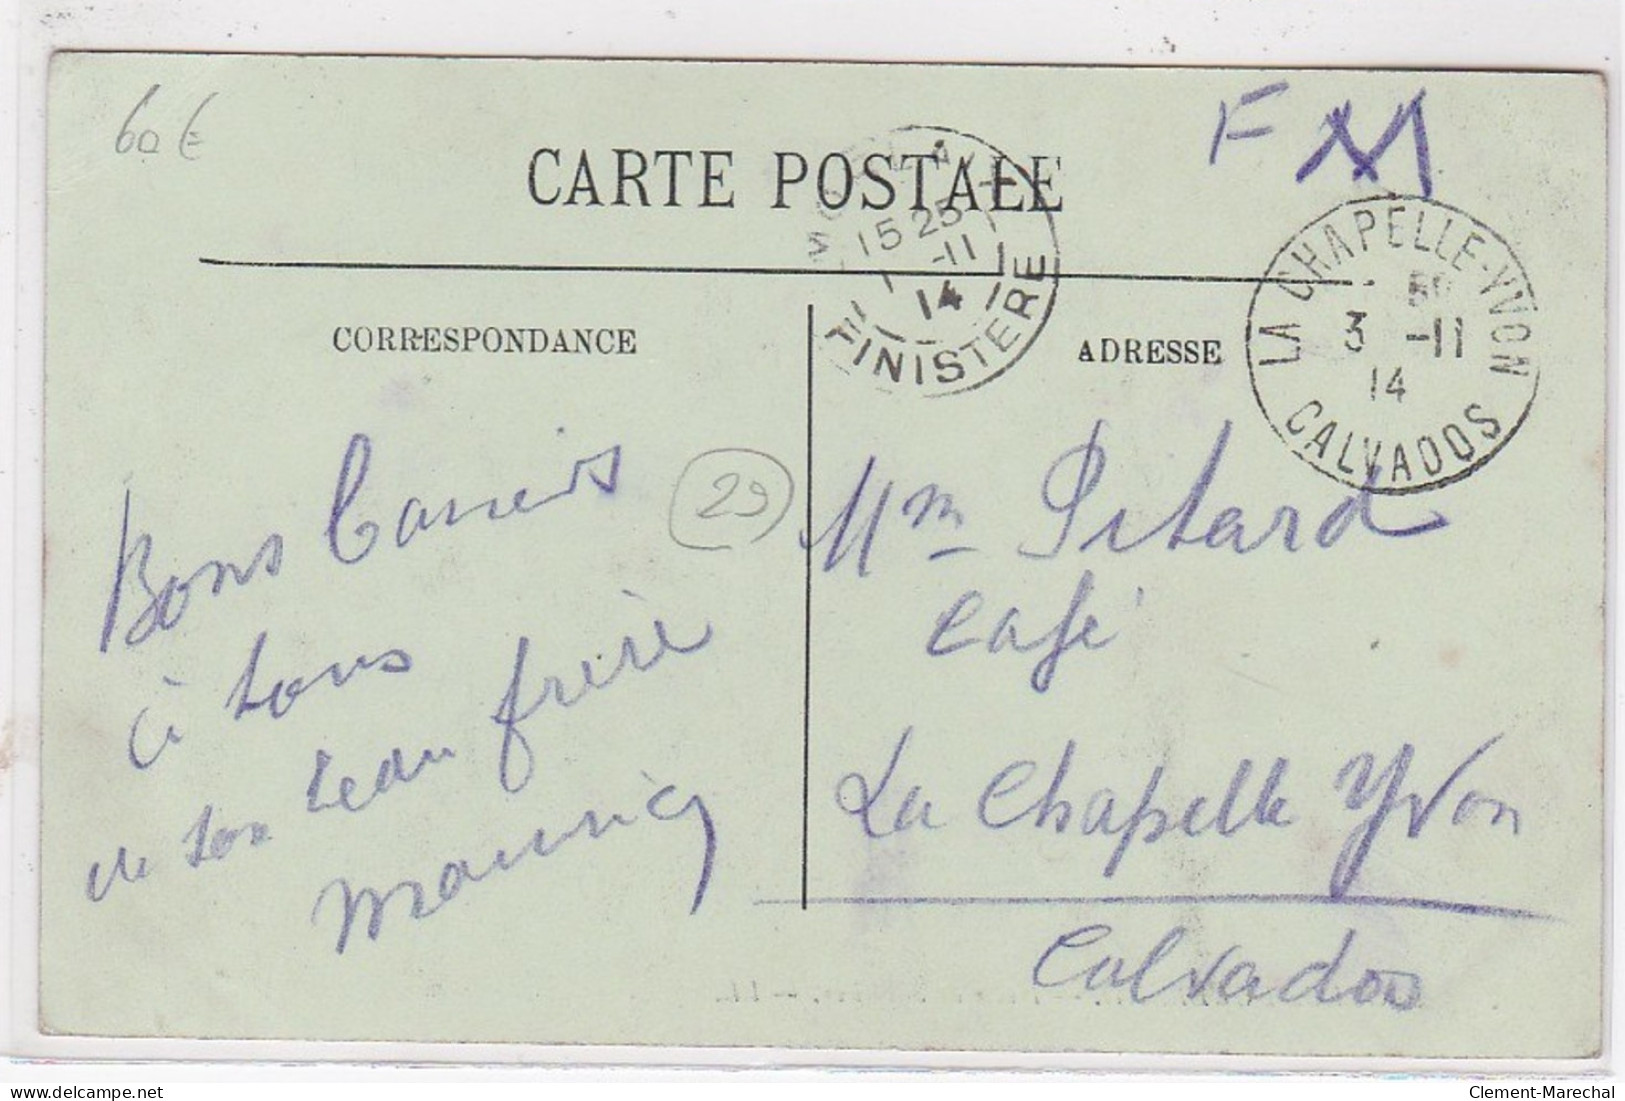 60 €
F M
CARTE POSTALE
15 25
1 -11
14
FINISTERE
LA CHAPELLE-YVON
3 -11
14
CALVADOS
CORRESPONDANCE
ADRESSE
Bons baisers
à tous
de ton beau frère
Maurice
29
Mm Pitard
Café
La Chapelle Yvon
Calvados
delcampe.net
Clement-Marechal